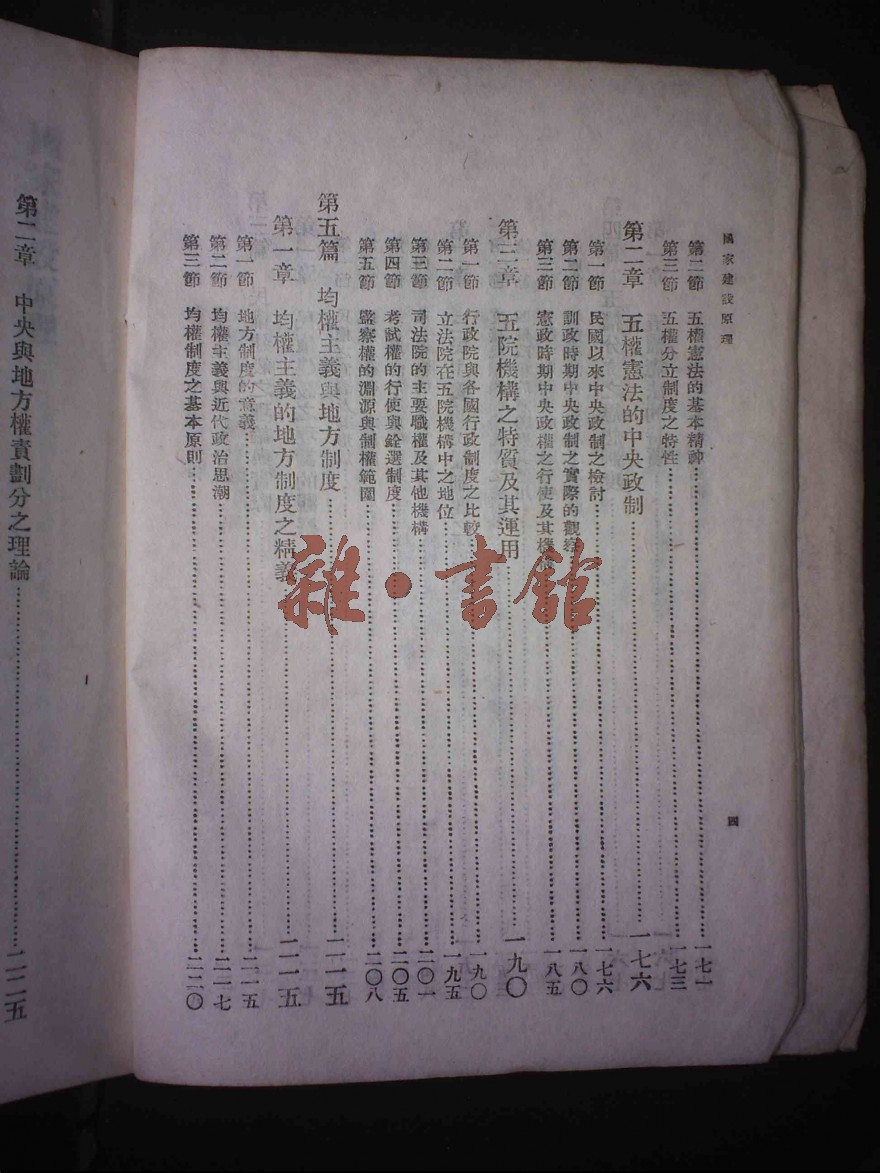 國家建設原理
四
第二節 五權憲法的基本精神 一七一
第三節 五權分立制度之特性 一七三
第二章 五權憲法的中央政制 一七六
第一節 民國以來中央政制之檢討 一七六
第二節 訓政時期中央政制之實際的觀察 一八〇
第三節 憲政時期中央政權之行使及其機構 一八五
第三章 五院機構之特質及其運用 一九〇
第一節 行政院與各國行政制度之比較 一九〇
第二節 立法院在五院機構中之地位 一九五
第三節 司法院的主要職權及其他機構 二〇一
第四節 考試權的行使與銓選制度 二〇五
第五節 監察權的淵源與制權範圍 二〇八
第五篇 均權主義與地方制度 二一五
第一章 均權主義的地方制度之精義 二一五
第一節 地方制度的意義 二一五
第二節 均權主義與近代政治思潮 二一七
第三節 均權制度之基本原則 二二〇
第二章 中央與地方權責劃分之理論 二二五
雜·書館